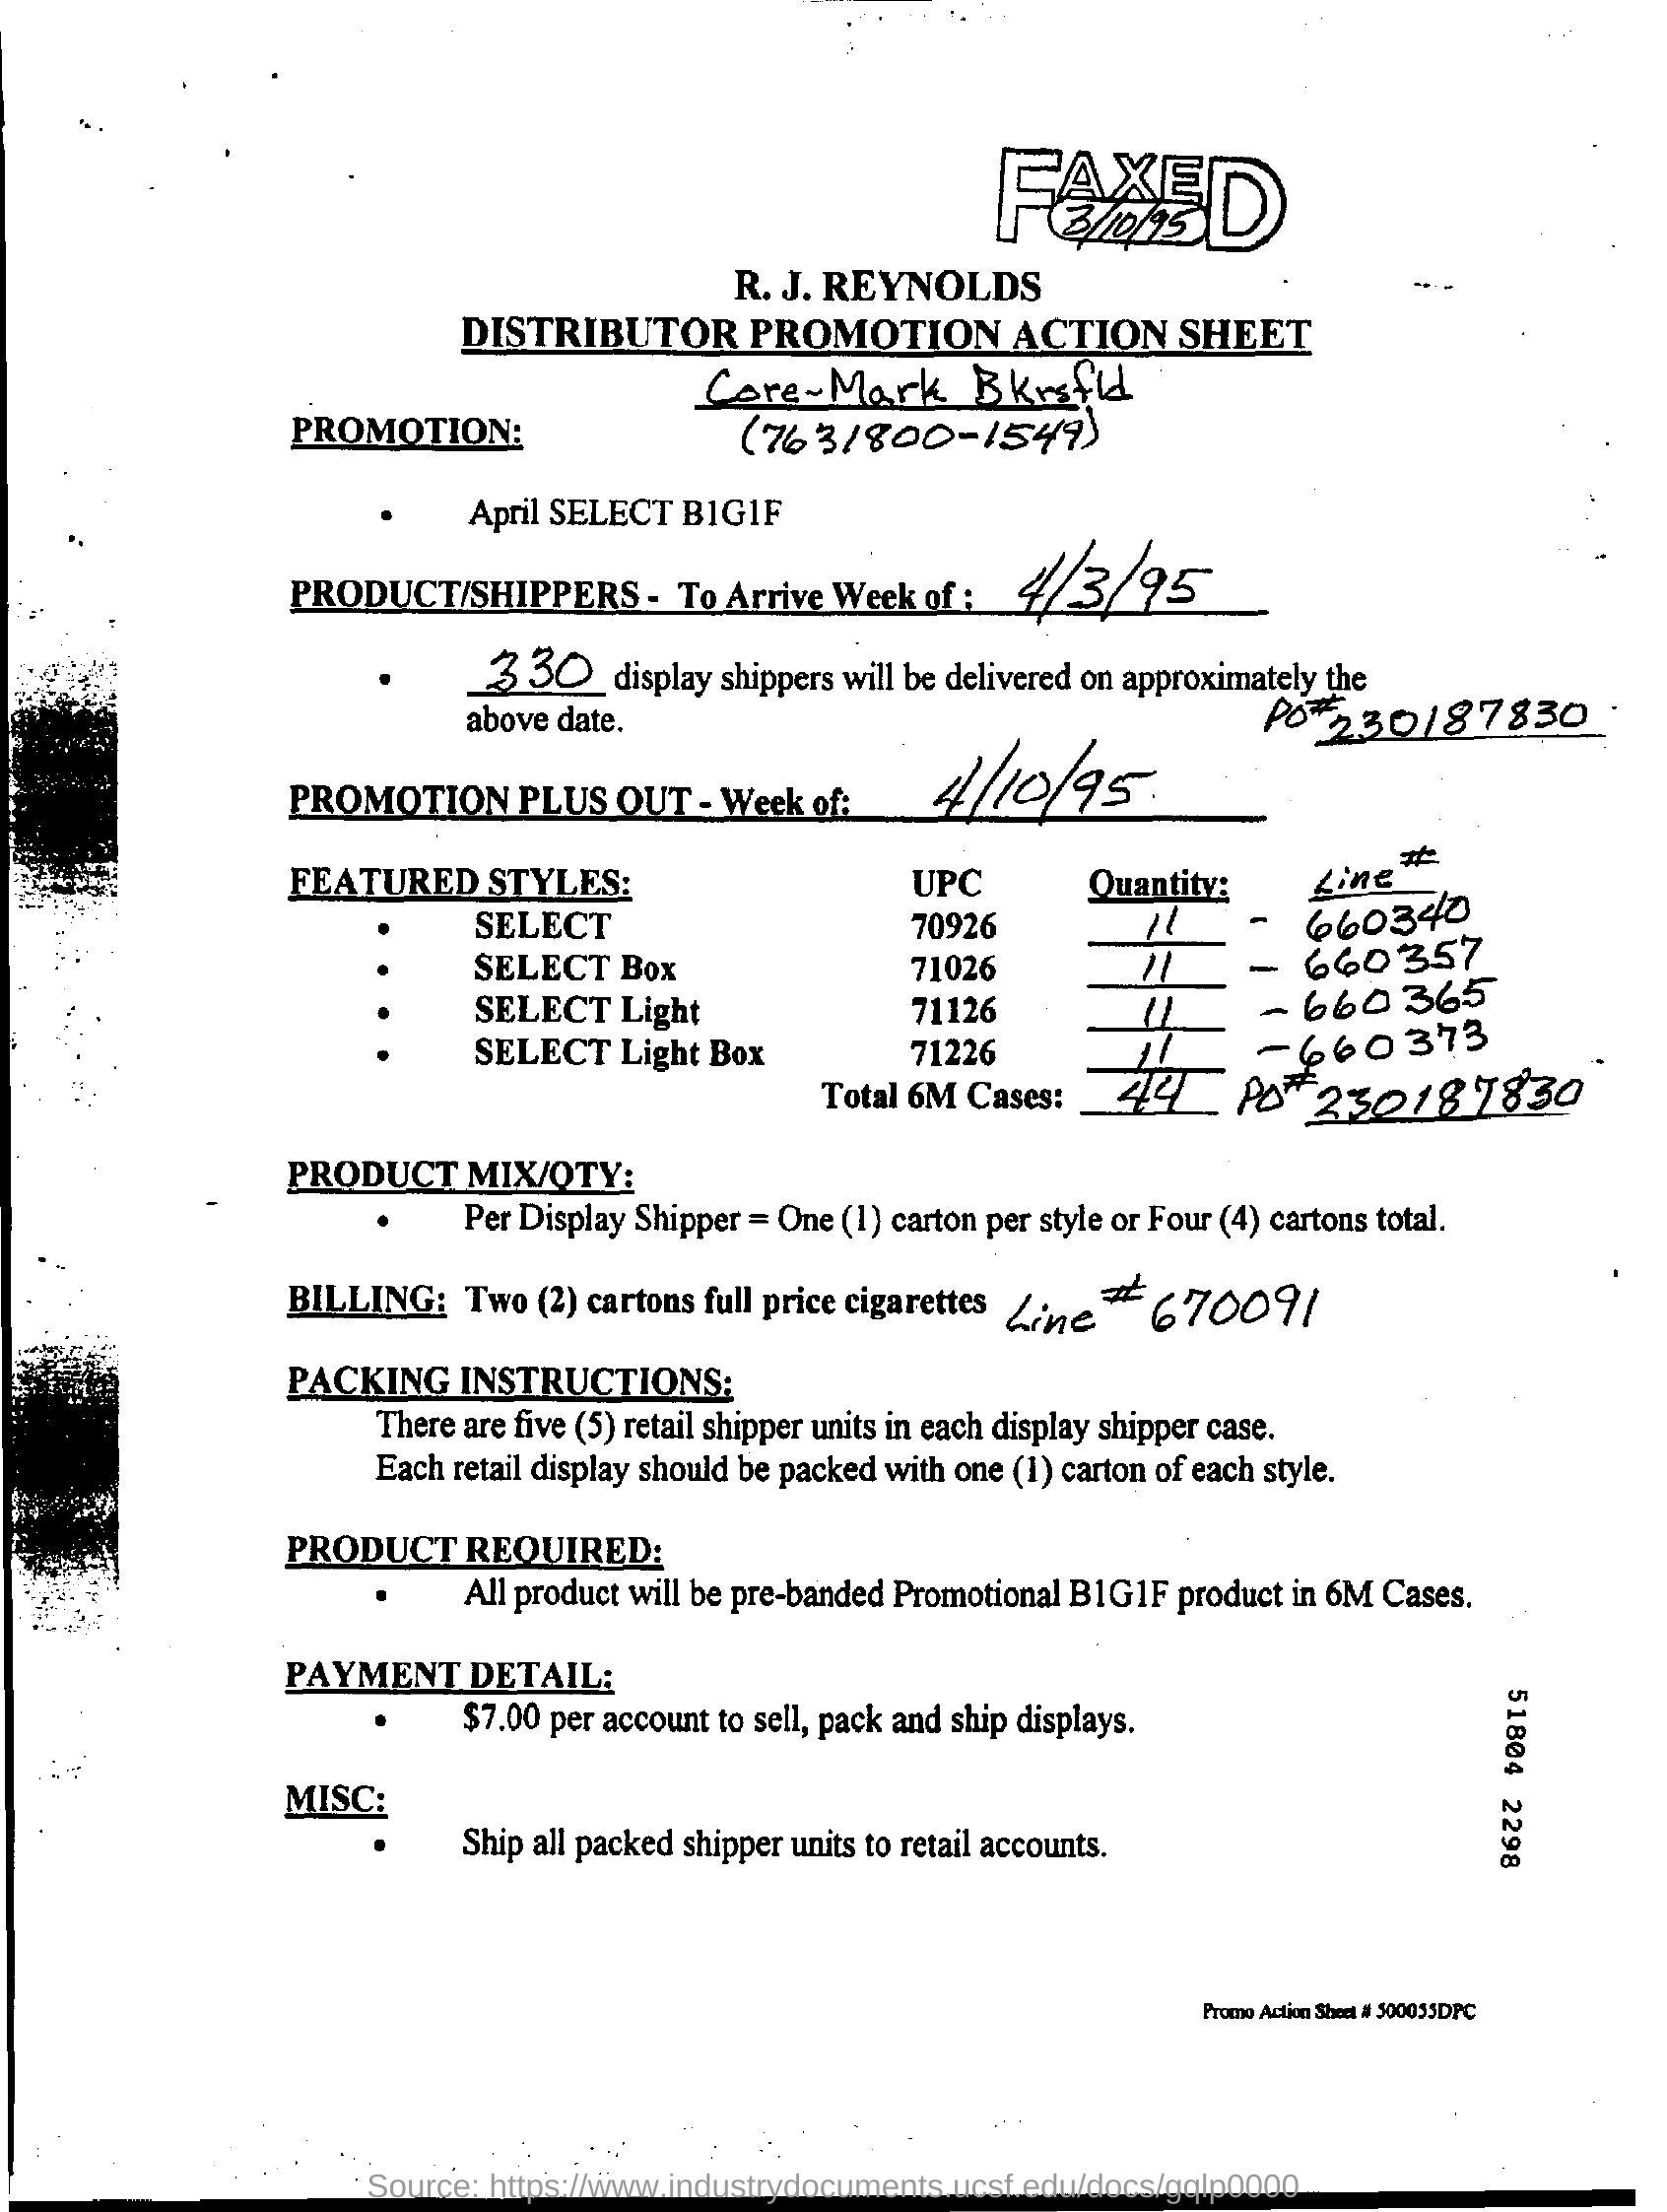 FAXED
3/10/95
R. J. REYNOLDS
DISTRIBUTOR PROMOTION ACTION SHEET
Core-Mark Bkrsfld
PROMOTION: (7631800-1549)
• April SELECT B1G1F
PRODUCT/SHIPPERS - To Arrive Week of : 4/3/95
• 330 display shippers will be delivered on approximately the
above date. PO# 230187830
PROMOTION PLUS OUT - Week of: 4/10/95
FEATURED STYLES: UPC Quantity: Line #
• SELECT 70926 11 - 660340
• SELECT Box 71026 11 - 660357
• SELECT Light 71126 11 - 660365
• SELECT Light Box 71226 11 - 660373
Total 6M Cases: 44 PO# 230187830
PRODUCT MIX/QTY:
• Per Display Shipper = One (1) carton per style or Four (4) cartons total.
BILLING: Two (2) cartons full price cigarettes Line # 670091
PACKING INSTRUCTIONS:
There are five (5) retail shipper units in each display shipper case.
Each retail display should be packed with one (1) carton of each style.
PRODUCT REQUIRED:
• All product will be pre-banded Promotional B1G1F product in 6M Cases.
PAYMENT DETAIL:
• $7.00 per account to sell, pack and ship displays.
MISC:
• Ship all packed shipper units to retail accounts.
51804 2298
Promo Action Sheet # 500055DPC
Source: https://www.industrydocuments.ucsf.edu/docs/gqlp0000